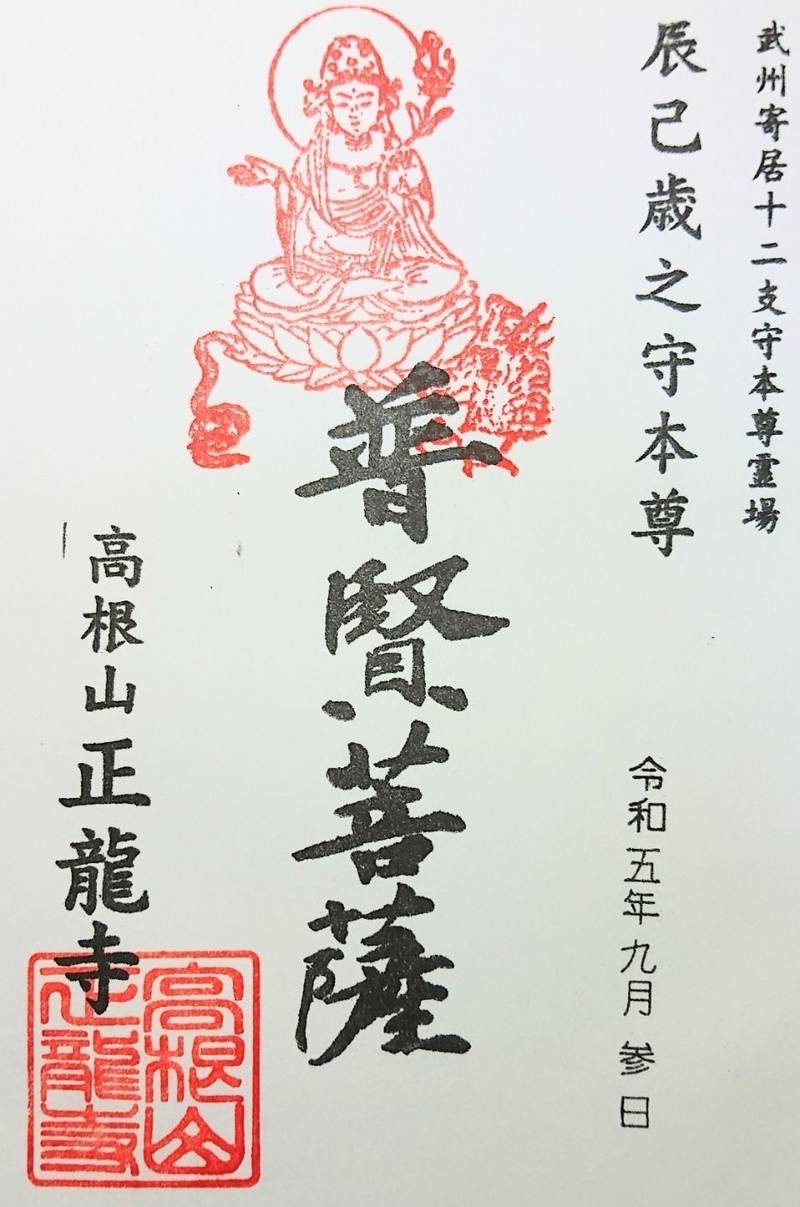 武州寄居十二支守本尊霊場
辰巳歳之守本尊
令和五年九月参日
普賢菩薩
高根山正龍寺
高根山
正龍寺